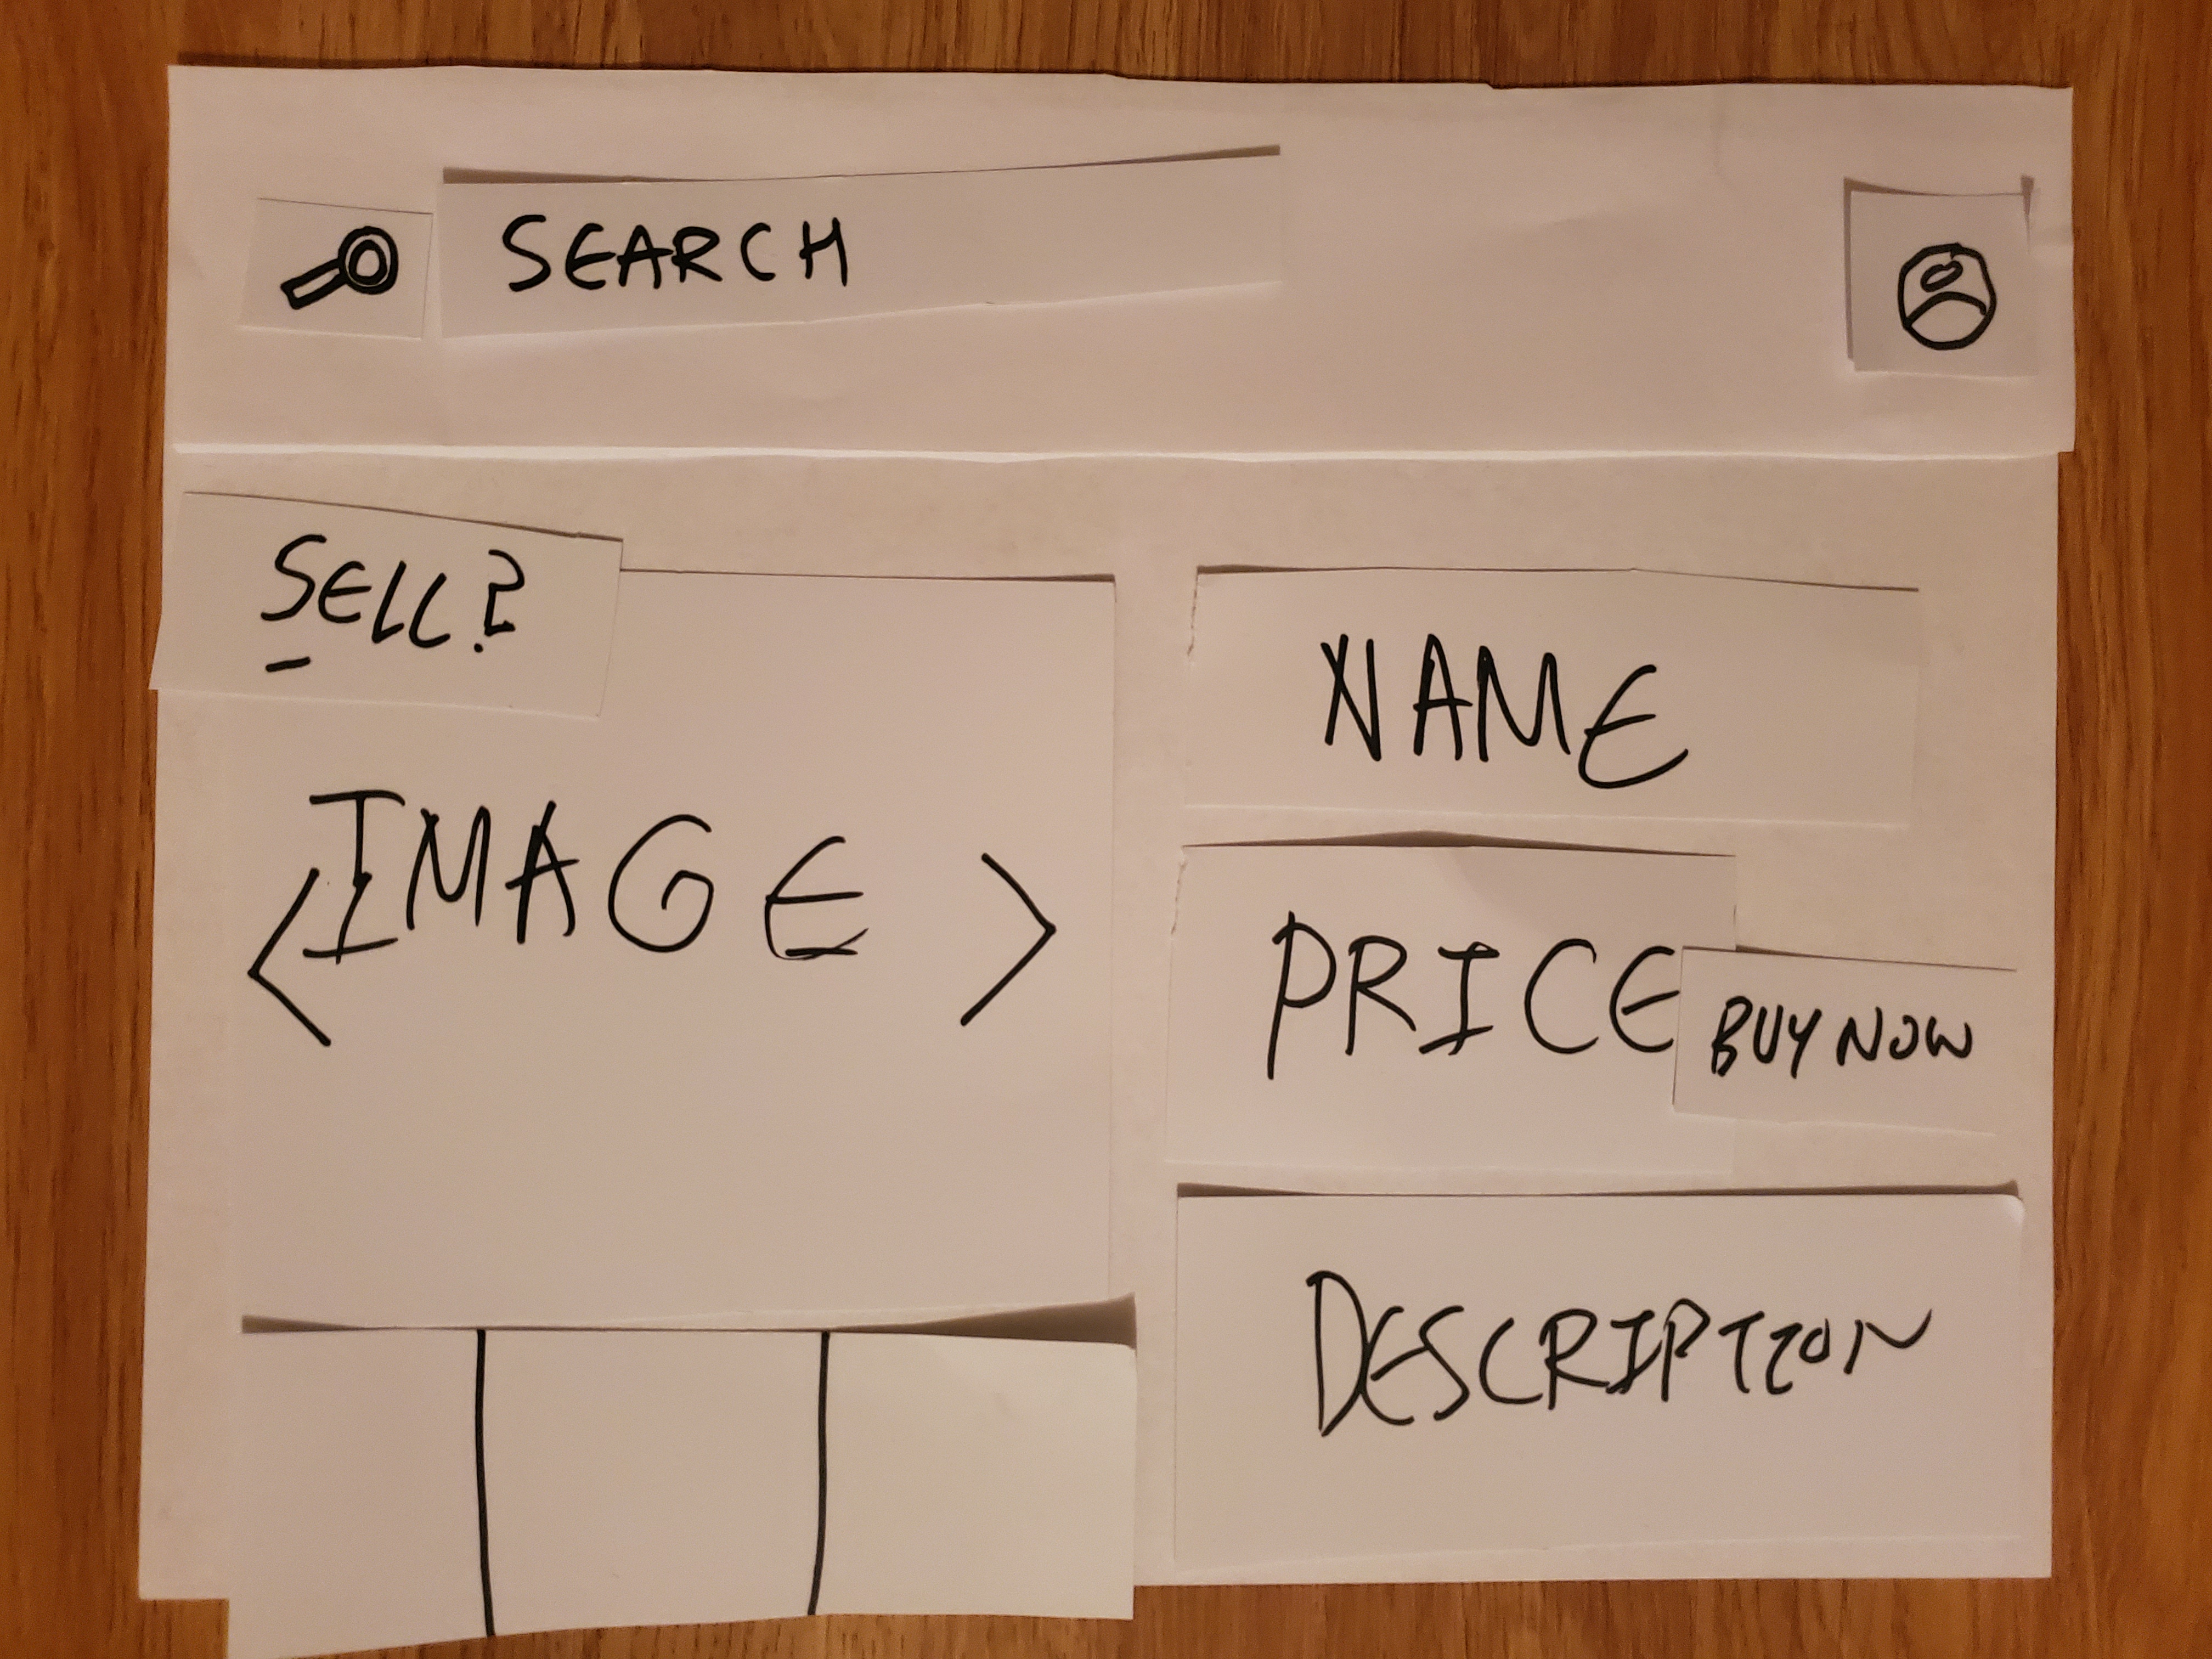 SEARCH
SELL?
< IMAGE >
NAME
PRICE
BUY NOW
DESCRIPTION